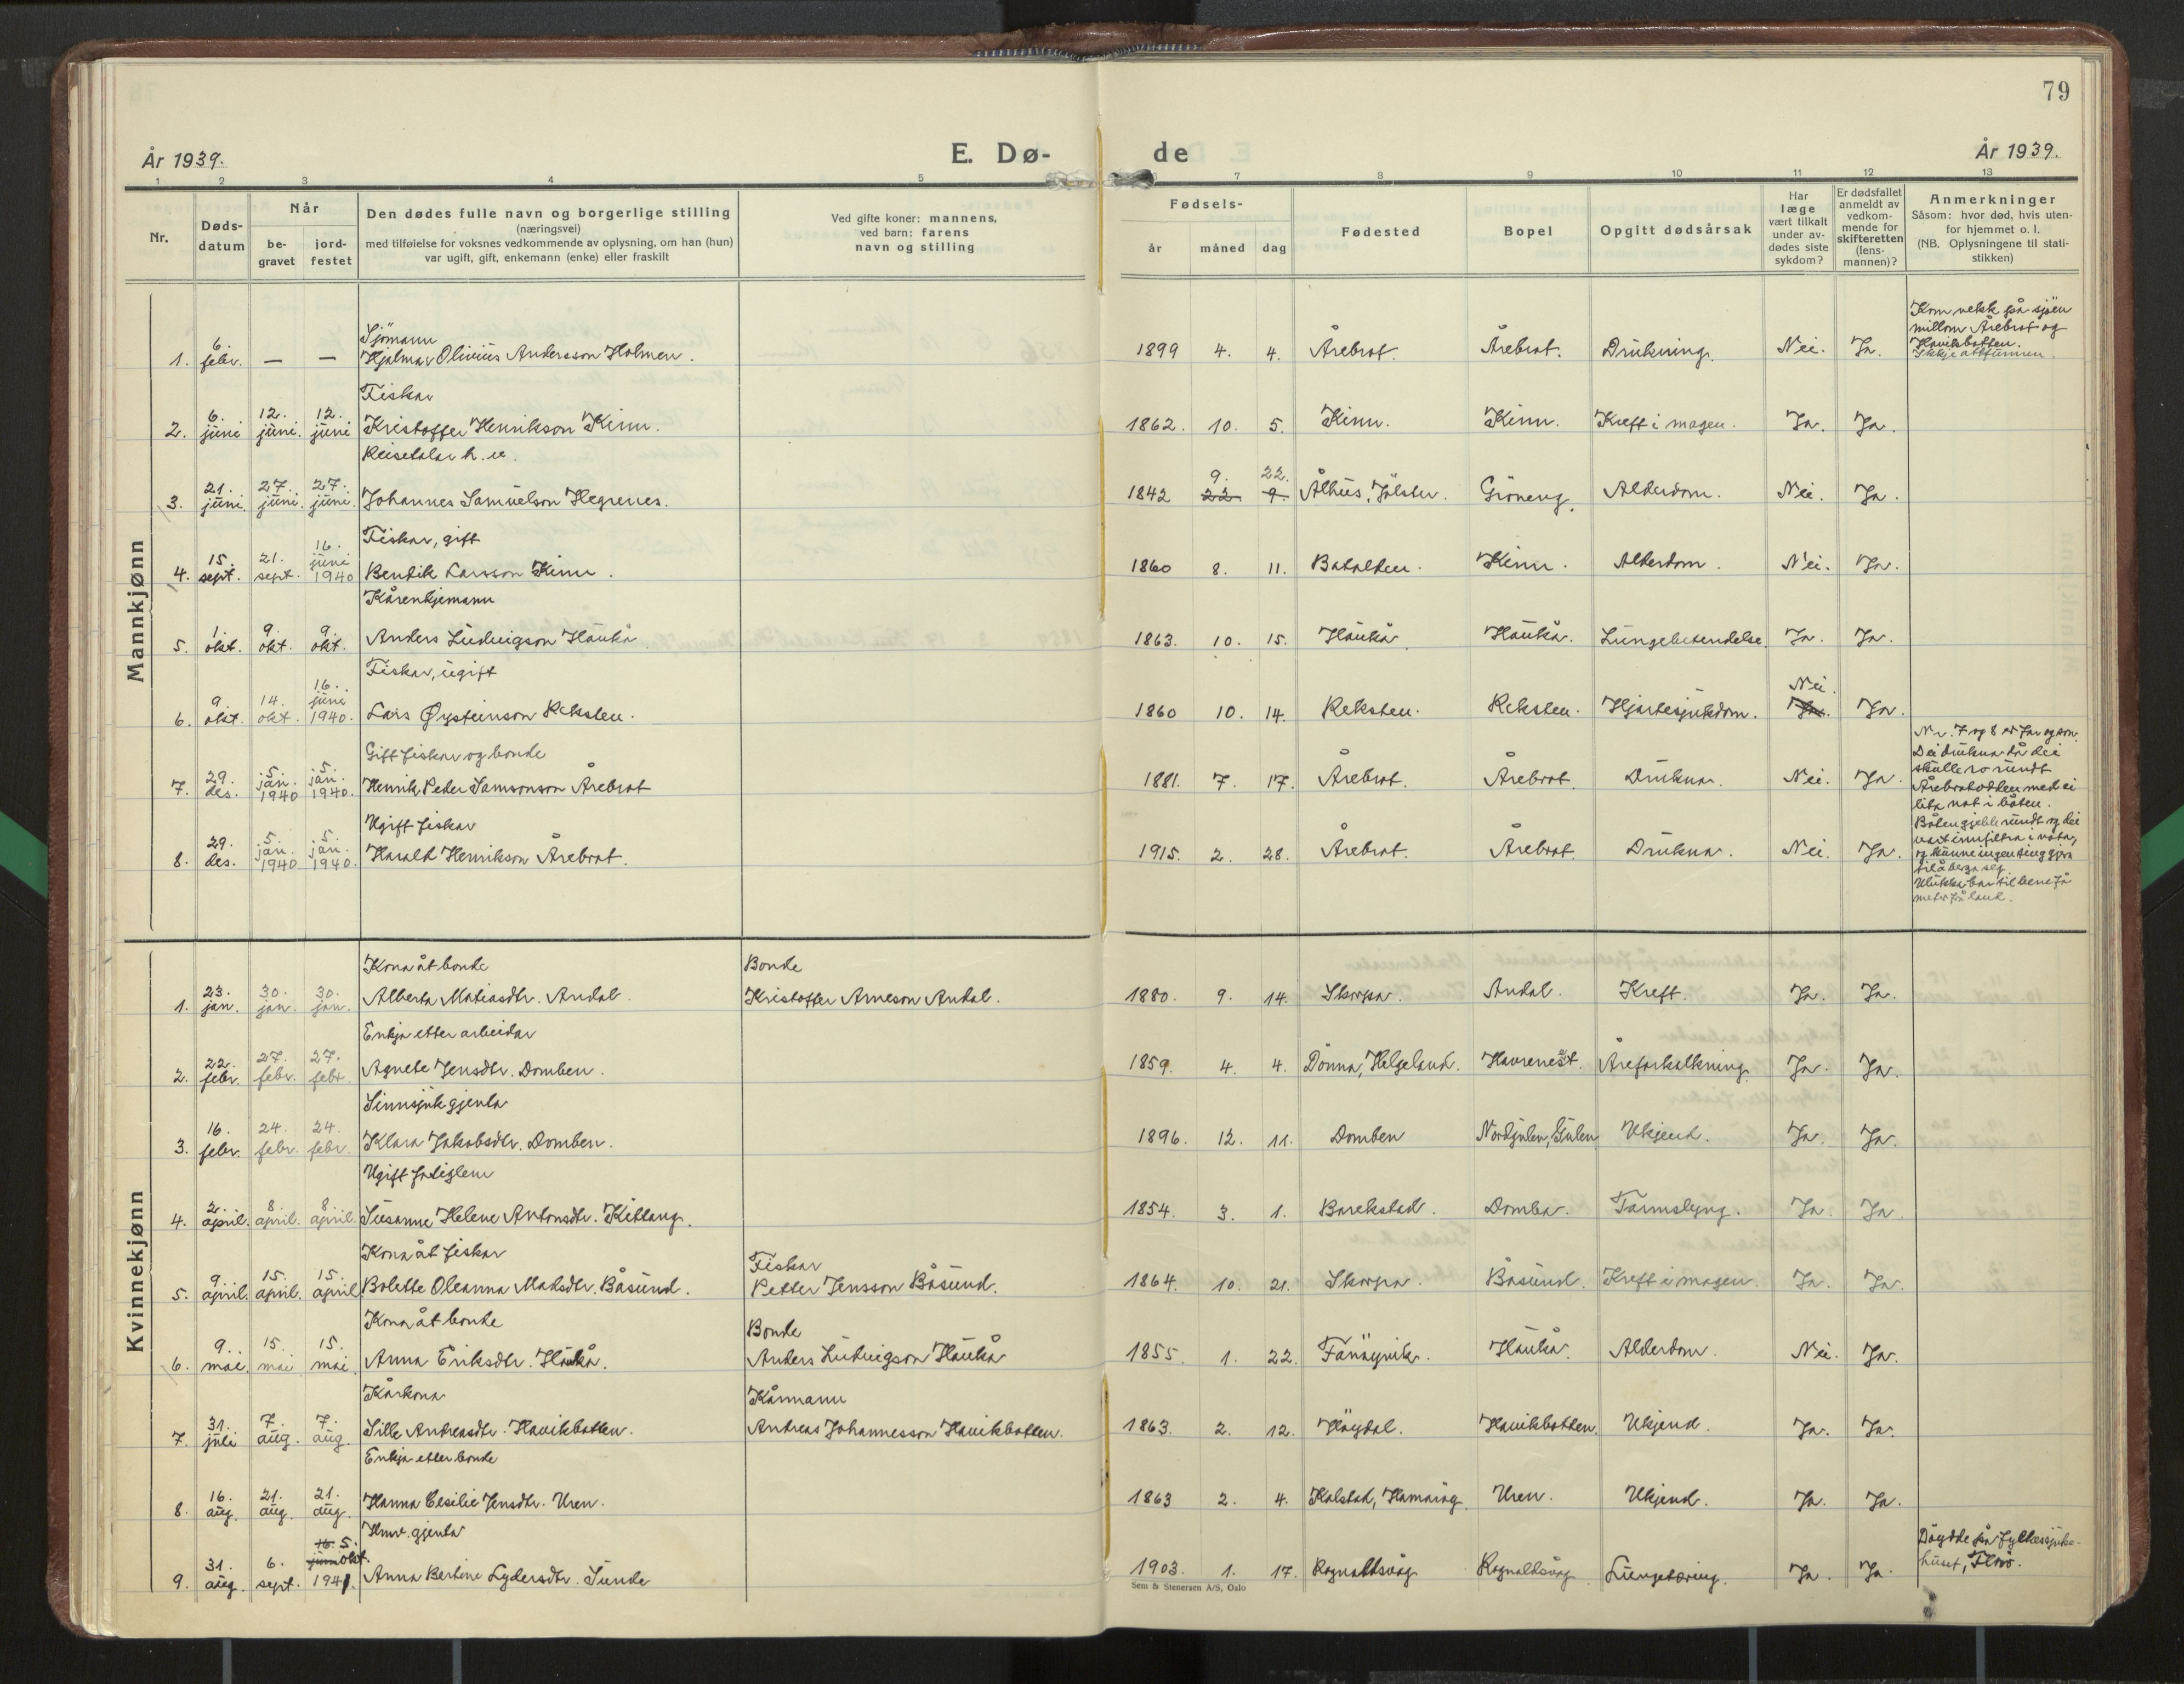 79
År 1939.
E. Dø-
de
År 1939.
1 2 3 4 5 7 8 9 10 11 12 13
Nr.
Døds-
datum
Når
be-
gravet
jord-
festet
Den dødes fulle navn og borgerlige stilling
(næringsvei)
med tilføielse for voksnes vedkommende av oplysning, om han (hun)
var ugift, gift, enkemann (enke) eller fraskilt
Ved gifte koner: mannens,
ved barn: farens
navn og stilling
Fødsels-
år
måned
dag
Fødested
Bopel
Opgitt dødsårsak
Har
læge
vært tilkalt
under av-
dødes siste
sykdom?
Er dødsfallet
anmeldt av
vedkom-
mende for
skifteretten
(lens-
mannen)?
Anmerkninger
Såsom: hvor død, hvis uten-
for hjemmet o. l.
(NB. Oplysningene til stati-
stikken)
Mannkjønn
Sjömann
1. 6. febr. — — Hjalmar Olivius Andersson Holmen. 1899 4. 4. Årebrot. Årebrot. Drukning. Nei. Ja.
Kom vekk på sjöen
millom Årebrot og
Havikbotten.
Ikkje attfunnen.
Fiskar
2. 6. juni 12. juni. 12. juni Kristoffer Henrikson Kinn. 1862. 10. 5. Kinn. Kinn. Kreft i magen. Ja. Ja.
Reisetalar h. v.
3. 21. juni. 27. juni. 27. juni. Johannes Samuelson Hegrenes. 1842 9. 22 22. 9. Ålhus, Jölster. Gröneng. Alderdom. Nei. Ja.
Fiskar, gift
4. 15. sept. 21. sept. 16. juni 1940 Bentik Larsson Kinn. 1860 8. 11. Batalden. Kinn. Alderdom. Nei. Ja.
Kårenkjemann
5. 1. okt. 9. okt. 9. okt. Anders Ludvigson Haukå 1863. 10. 15. Haukå. Haukå. Lungebetendelse. Ja. Ja.
Fiskar, ugift
6. 9. okt. 14. okt. 16. juni 1940. Lars Øysteinson Reksten. 1860 10. 14. Reksten. Reksten. Hjartesjukdom. Nei. Ja. Ja.
Gift fiskar og bonde
7. 29. des. 5. jan. 1940 5. jan. 1940. Henrik Peder Samsonson Årebrot 1881. 7. 17. Årebrot. Årebrot. Drukna. Nei. Ja.
Ugift fiskar
8. 29. des. 5. jan. 1940 5. jan. 1940. Harald Henrikson Årebrot. 1915. 2. 28. Årebrot. Årebrot. Drukna. Nei. Ja.
Nr. 7 og 8 er far og son.
Dei drukna då dei
skulle ro rundt
Årebrotodden med ei
lita not i båten.
Båten gjekk rundt og dei
vart innfiltra i nota,
og kunne ingenting gjera
til å berga seg.
Ulukka bar til berre få
meter frå land.
Kvinnekjønn
Kona åt bonde Bonde
1. 23. jan. 30. jan. 30. jan. Alberta Matiasdtr. Andal. Kristoffer Arneson Andal. 1880. 9. 14. Skorpa. Andal. Kreft. Ja. Ja.
Enkja etter arbeidar
2. 22. febr. 27. febr. 27. febr. Agnete Jensdtr. Domben. 1859. 4. 4. Dönna, Helgeland. Havrenest. Åreforkalkning. Ja. Ja.
Sinnsjuk gjenta
3. 16. febr. 24. febr. 24. febr. Klara Jakobsdtr. Domben. 1896. 12. 11. Domben Nordgulen, Gulen Ukjend. Ja. Ja.
Ugift fatiglem
4. 2. april. 8. april. 8. april. Susanne Helene Antonsdtr. Kitlang. 1854. 3. 1. Barekstad. Domba. Tarmslyng. Ja. Ja.
Kona åt fiskar Fiskar
5. 9. april. 15. april. 15. april Bolette Oleanna Madsdtr. Båsund. Petter Jensson Båsund. 1864. 10. 21. Skorpa. Båsund. Kreft i magen. Ja. Ja.
Kona åt bonde Bonde
6. 9. mai. 15. mai 15. mai. Anna Eriksdtr. Haukå. Anders Ludvigson Haukå 1855. 1. 22. Fanöyvik. Haukå. Alderdom. Nei. Ja.
Kårkona Kårmann
7. 31. juli 7. aug. 7. aug. Sille Andreasdtr. Havikbotten. Andreas Johannesson Havikbotten. 1863. 2. 12. Höydal. Havikbotten. Ukjend. Ja. Ja.
Enkja etter bonde
8. 16. aug. 21. aug. 21. aug. Hanna Cesilie Jensdtr. Uren. 1863 2. 4. Kalstad, Hamarög. Uren. Ukjend. Ja. Ja.
Hmv. gjenta
9. 31. aug. 6. sept. 16. juni 5. okt. 1941. Anna Bertine Lydersdtr. Sunde 1903. 1. 17. Rognaldsvåg Rognaldsvåg. Lungetæring. Ja. Ja.
Döydde på fylkessjuke-
huset, Florö.
Sem & Stenersen A/S, Oslo